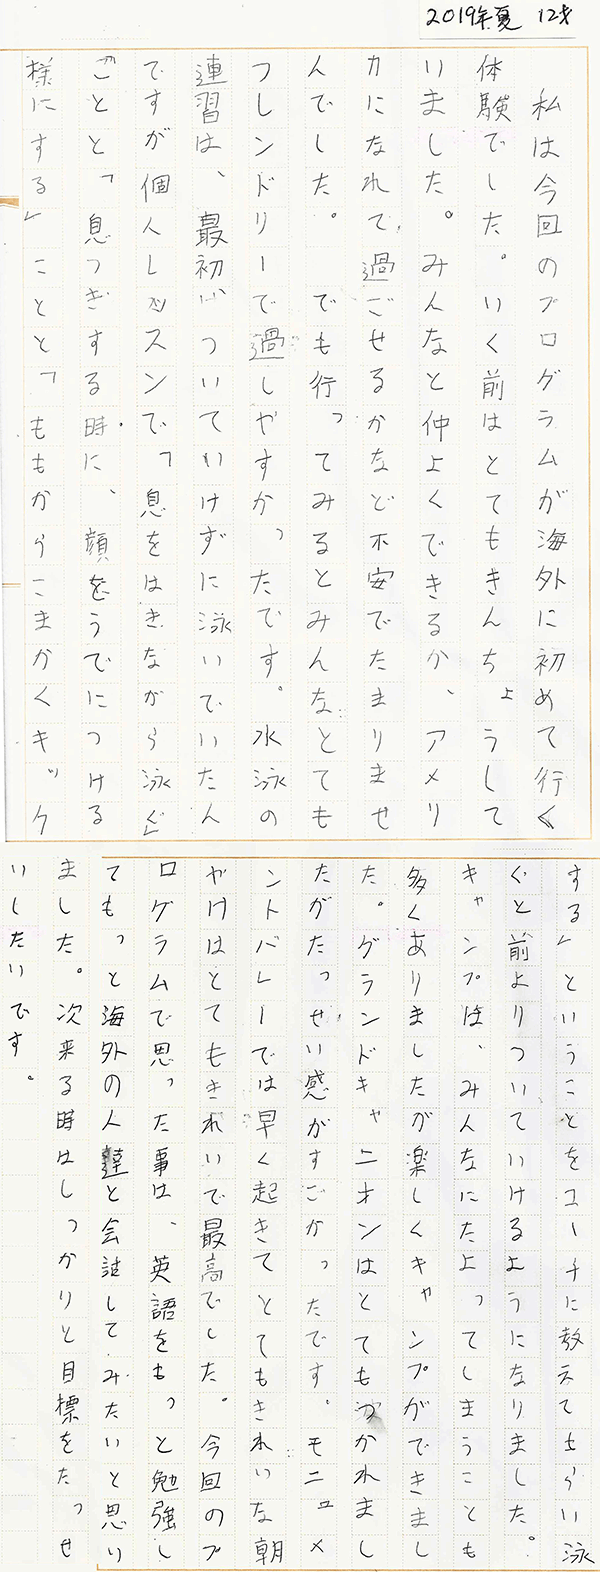 2019年夏 12才
私は今回のプログラムが海外に初めて行く
体験でした。いく前はとてもきんちょうして
いました。みんなと仲よくできるか、アメリ
カになれて、過ごせるかなど不安でたまりませ
んでした。 でも行ってみるとみんなとても
フレンドリーで過しやすかったです。水泳の
連習は、最初、ついていけずに泳いでいたん
ですが個人レッスンで、「息をはきながら泳ぐ」
ことと、「息つぎする時に、顔をうでにつける
様にする」ことと「ももからこまかくキック
する」ということをコーチに教えてもらい泳
ぐと前よりついていけるようになりました。
キャンプは、みんなにたよってしまうことも
多くありましたが楽しくキャンプができまし
た。グランドキャニオンはとてもつかれまし
たがたっせい感がすごかったです。モニュメ
ントバレーでは早く起きてとてもきれいな朝
やけはとてもきれいで最高でした。今回のプ
ログラムで思った事は、英語をもっと勉強し
てもっと海外の人達と会話してみたいと思い
ました。次来る時はしっかりと目標をたっせ
いしたいです。